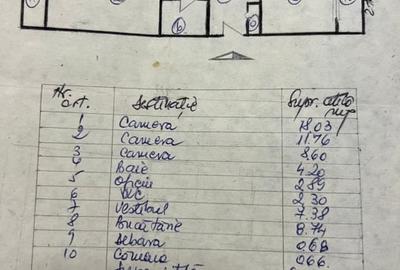 6
Nr. crt. Destinație Supr. utilă mp
1 Camera 18.03
2 Camera 11.76
3 Camera 8.60
4 Baie 4.20
5 Oficiu 2.89
6 WC 2.30
7 Vestibul 7.38
8 Bucătărie 8.74
9 Debara 0.68
10 Cămara 0.66